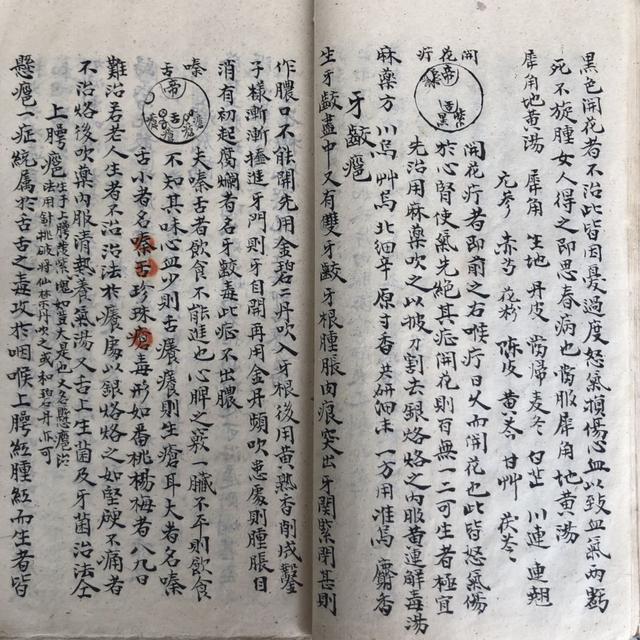 黑色開花者不治此皆因憂過度怒氣損傷心血以致血氣兩虧
死不旋腫女人得之即思春病也當服犀角地黃湯
犀角地黃湯 犀角 生地 丹皮 當歸 麦冬 白芷 川連 連翹
元參 赤芍 花粉 陳皮 黃芩 甘艸 茯苓
開花疔
帝
紫
黑
開花疔者即前之右喉疔日久而開花也此皆怒氣傷
於心腎使氣先絕其症開花則百無一二可生者極宜
先治用麻藥吹之以披刀割去銀烙烙之內服黃連解毒湯
麻藥方 川烏 艸烏 北細辛 原寸香 共研細末 一方用淮烏 麝香
牙齩癰
生牙齩盡中又有雙牙齩牙根腫脹肉痕突出牙関緊閉甚則
作膿口不能開先用金碧二丹吹入牙根後用黃熟香削成鑿
子樣漸漸撬進牙門則牙自開再用金丹頻吹患處則腫脹自
消有初起腐爛者名牙齩毒此症不出膿
嗦舌
帝
舌
夫嗦舌者飲食不能進也心脾之竅一臟不平則飲食
不知其味心血少則舌癢癢則生瘡耳大者名嗦
舌小者名嗦舌珍珠毒形如番桃楊梅者八九日
難治若老人生者不治治法於癢處以銀烙烙之如堅硬不痛者
不治烙後吹藥內服清熱養氣湯又舌上生菌及牙菌治法仝
上腭癰 生于上腭莖紫塊如李大是也又名懸癰治
法用針挑破將仙林丹吹之或和碧丹亦可
懸癰一症統屬於舌舌之毒攻於咽喉上腭紅腫紅而生者皆